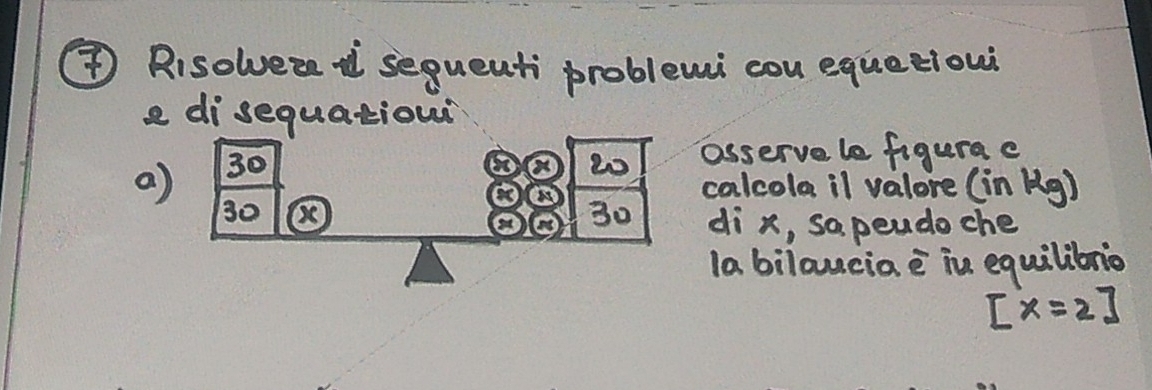 7 Risolvere i seguenti problemi con equazioni
e disequazioni
a) 30 x x 20 osserva la figura e
30 x x x calcola il valore (in Kg)
x x 30 di x, sapendo che
la bilancia è in equilibrio
[x=2]